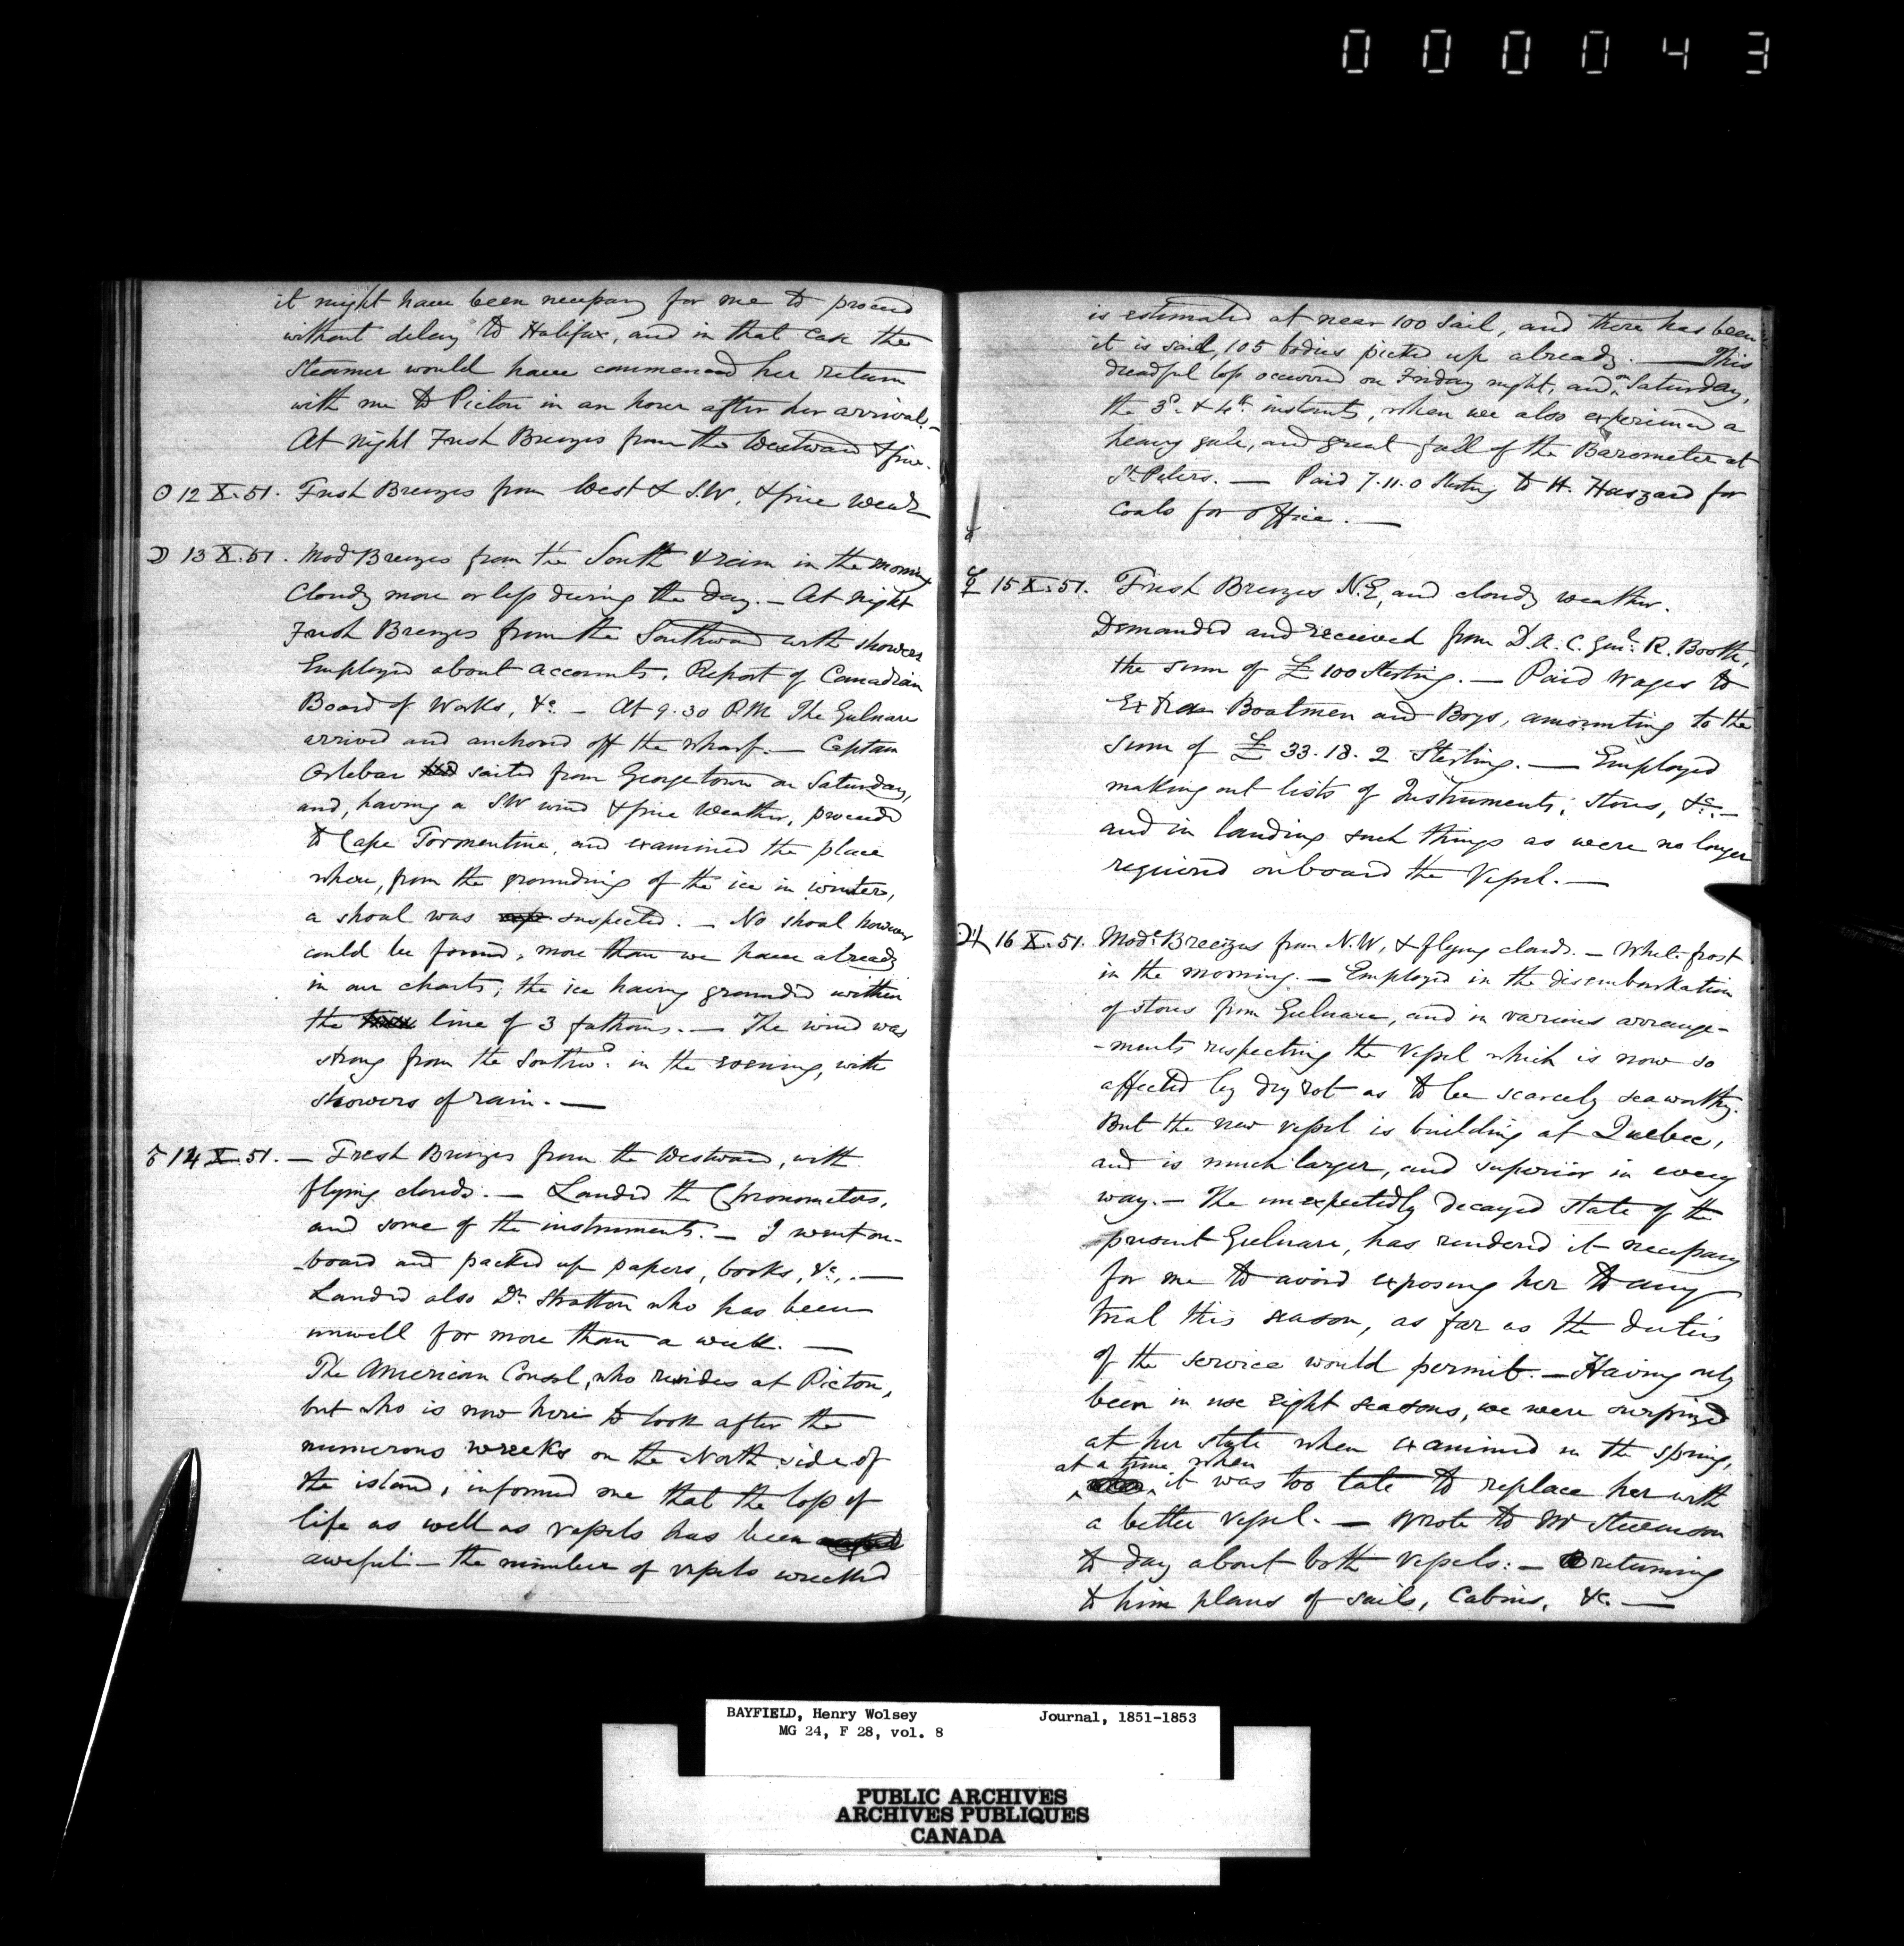 000043
it might have been necessary for me to proceed
without delay to Halifax, and in that case the
Steamer would have commenced her return
with me to Pictou in an hour after her arrival. –
At night Fresh Breezes from the Westward & fine.
☉ 12 X. 51. Fresh Breezes from West & S.W, & fine Weath
☽ 13 X. 51. Modᵉ Breezes from the South & rain in the morning
Cloudy more or less during the day. – At Night
Fresh Breezes from the Southward with showers
Employed about Accounts, Report of Canadian
Board of Works, &c. – At 9.30 P.M. The Gulnare
arrived and anchored off the wharf. – Captain
Orlebar had sailed from Georgetown on Saturday,
and, having a SW wind & fine Weather, proceeded
to Cape Tormentine, and examined the place
where, from the grounding of the ice in winter,
a shoal was suspected. – No shoal however
could be found, more than we have already
in our charts; the ice having grounded within
the line of 3 fathoms. – The wind was
strong from the Southwᵈ. in the evening, with
showers of rain. –
♂ 14 X. 51. – Fresh Breezes from the Westward, with
flying clouds. – Landed the Chronometers,
and some of the instruments. – I went on-
-board and packed up papers, books, &c., –
Landed also Dr. Stratton who has been
unwell for more than a week. –
The American Consul, who resides at Pictou,
but who is now here to look after the
numerous wrecks on the North side of
the island, informed me that the loss of
life as well as vessels has been
aweful – the number of vessels wrecked
is estimated at near 100 Sail, and there has been
it is said, 105 bodies picked up already. – This
dreadful loss occurred on Friday night, and on Saturday,
the 3ᵈ. & 4ᵗʰ. instants, when we also experienced a
heavy gale, and great fall of the Barometer at
Sᵗ. Peters. – Paid 7.11.0 Sterling to H. Haszard for
Coals for Office. –
☿ 15 X. 51. Fresh Breezes N.E, and cloudy weather.
Demanded and received from D.A.C. Genˡ. R. Booth,
the sum of £ 100 Sterling. – Paid Wages to
Extra Boatmen and Boys, amounting to the
sum of £ 33.18.2 Sterling. – Employed
making out lists of Instruments, Stores, &c. –
and in landing such things as were no longer
required onboard the Vessel. –
♃ 16 X. 51. Modᵉ Breezes from N.W, & flying clouds. – White frost
in the morning. – Employed in the disembarkation
of stores from Gulnare, and in various arrange-
-ments respecting the Vessel which is now so
affected by dry rot as to be scarcely seaworthy.
But the new vessel is building at Quebec,
and is much larger, and superior in every
way. – The unexpectedly decayed state of the
present Gulnare, has rendered it necessary
for me to avoid exposing her to any
trial this season, as far as the duties
of the service would permit. – Having only
been in use eight seasons, we were surprized
at her state when examined in the spring,
at a time when
it was too late to replace her with
a better Vessel. – Wrote to Mr Stevenson
to day about both Vessels: – returning
to him plans of sails, Cabins, &c. –
BAYFIELD, Henry Wolsey Journal, 1851-1853
MG 24, F 28, vol. 8
PUBLIC ARCHIVES
ARCHIVES PUBLIQUES
CANADA